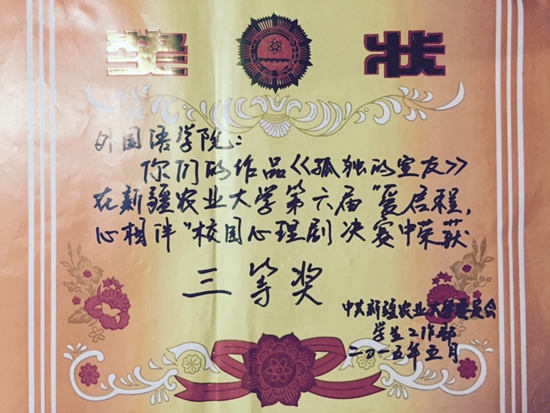 奖 状
外国语学院：
你们的作品《孤独的室友》
在新疆农业大学第六届“爱启程，
心相伴”校园心理剧决赛中荣获
三等奖
中共新疆农业大学委员会
学生工作部
二〇一五年五月